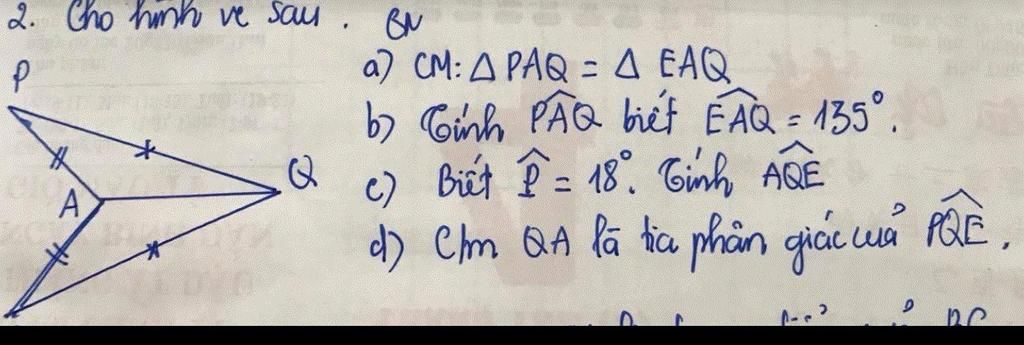 2. Cho hình vẽ sau. BN
a) CM: Δ PAQ = Δ EAQ
b) Tính PÂQ biết EÂQ = 135°.
c) Biết P̂ = 18°. Tính AQ̂E
d) C/m QA là tia phân giác của PQ̂E.
P
Q
A